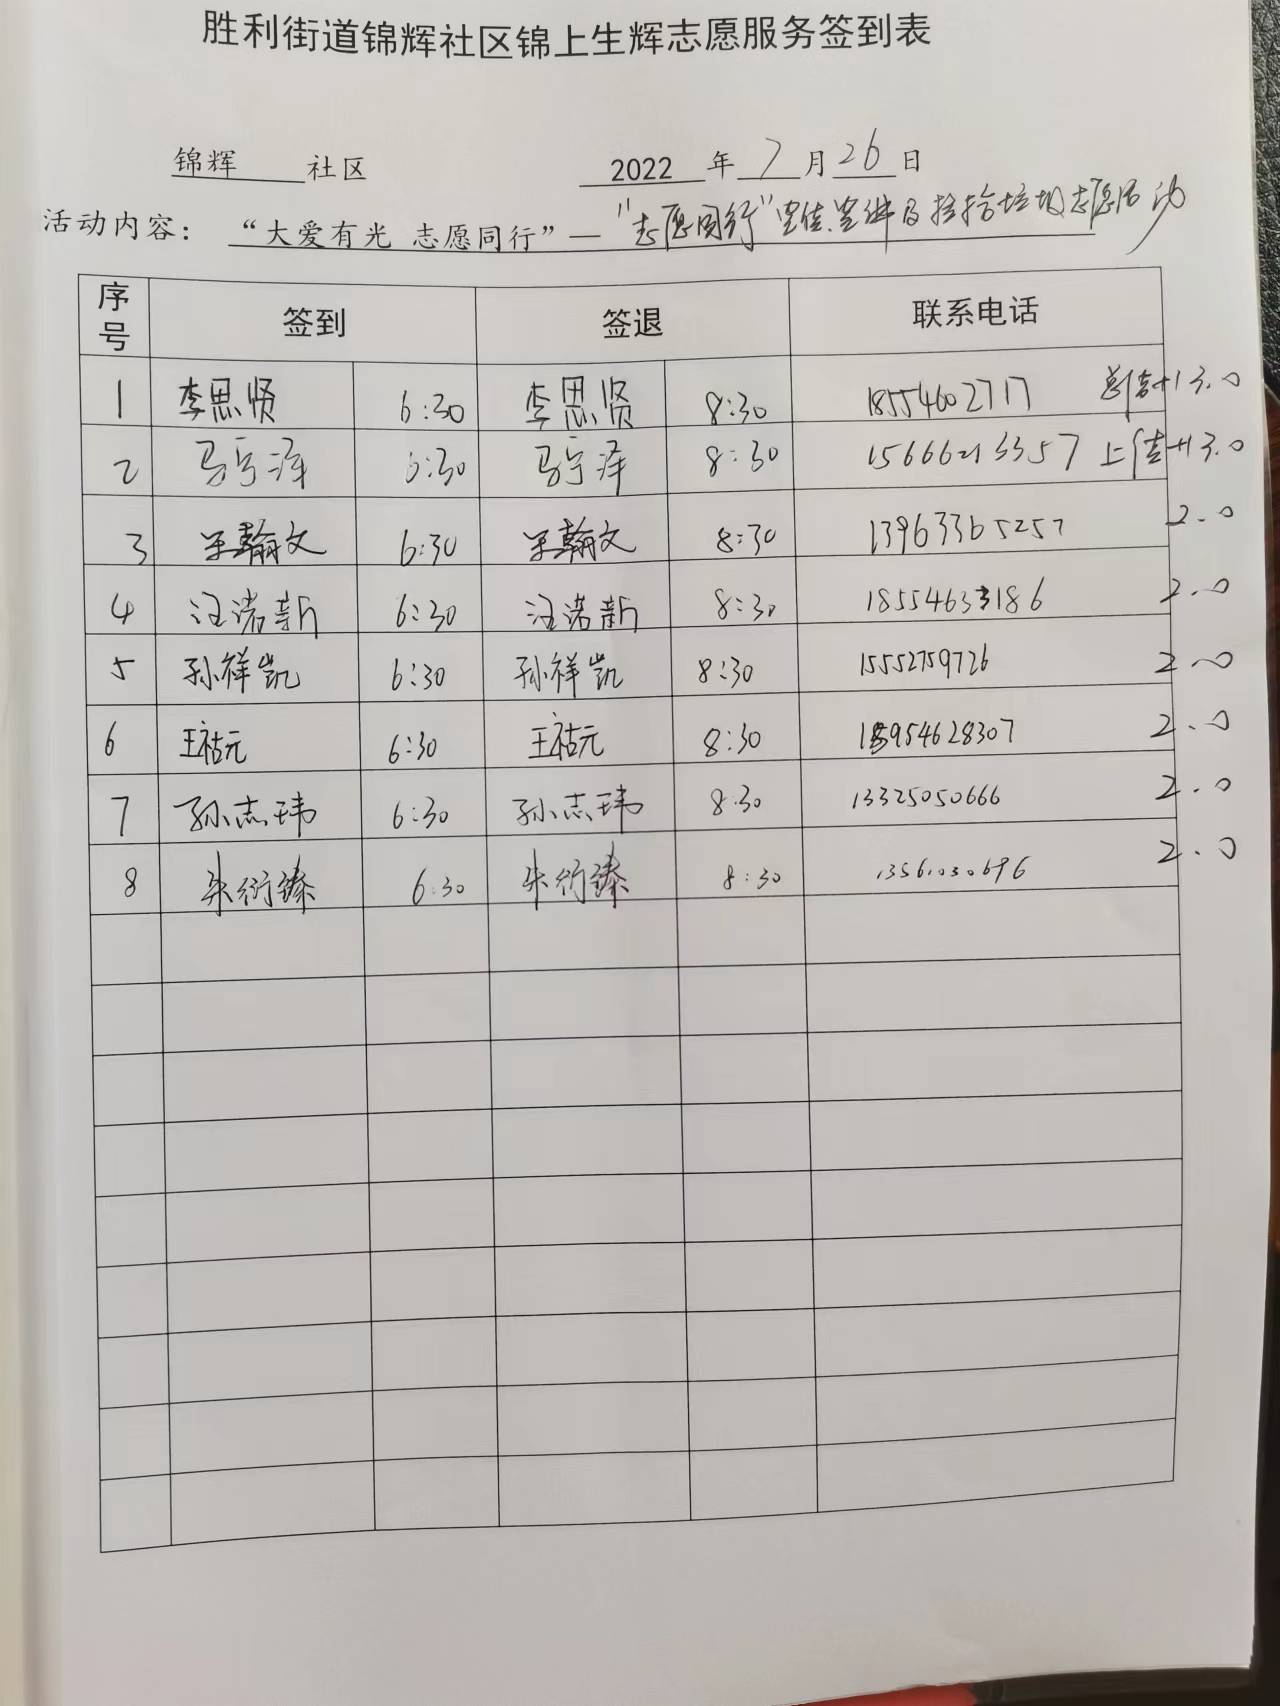 胜利街道锦辉社区锦上生辉志愿服务签到表
锦辉 社区 2022 年 7 月 26 日
活动内容: “大爱有光 志愿同行”—“志愿同行” 及捡拾垃圾志愿活动
序号 签到 签退 联系电话
1 李思贤 6:30 李思贤 8:30 18554602717 +1 3.0
2 马宁泽 6:30 马宁泽 8:30 15666213357 上传+1 3.0
3 翰文 6:30 翰文 8:30 13963365257 2.0
4 汪诺新 6:30 汪诺新 8:30 18554633186 2.0
5 孙祥凯 6:30 孙祥凯 8:30 15552759726 2.0
6 王祜元 6:30 王祜元 8:30 18954628307 2.0
7 孙志玮 6:30 孙志玮 8:30 13325050666 2.0
8 朱衍臻 6:30 朱衍臻 8:30 2.0